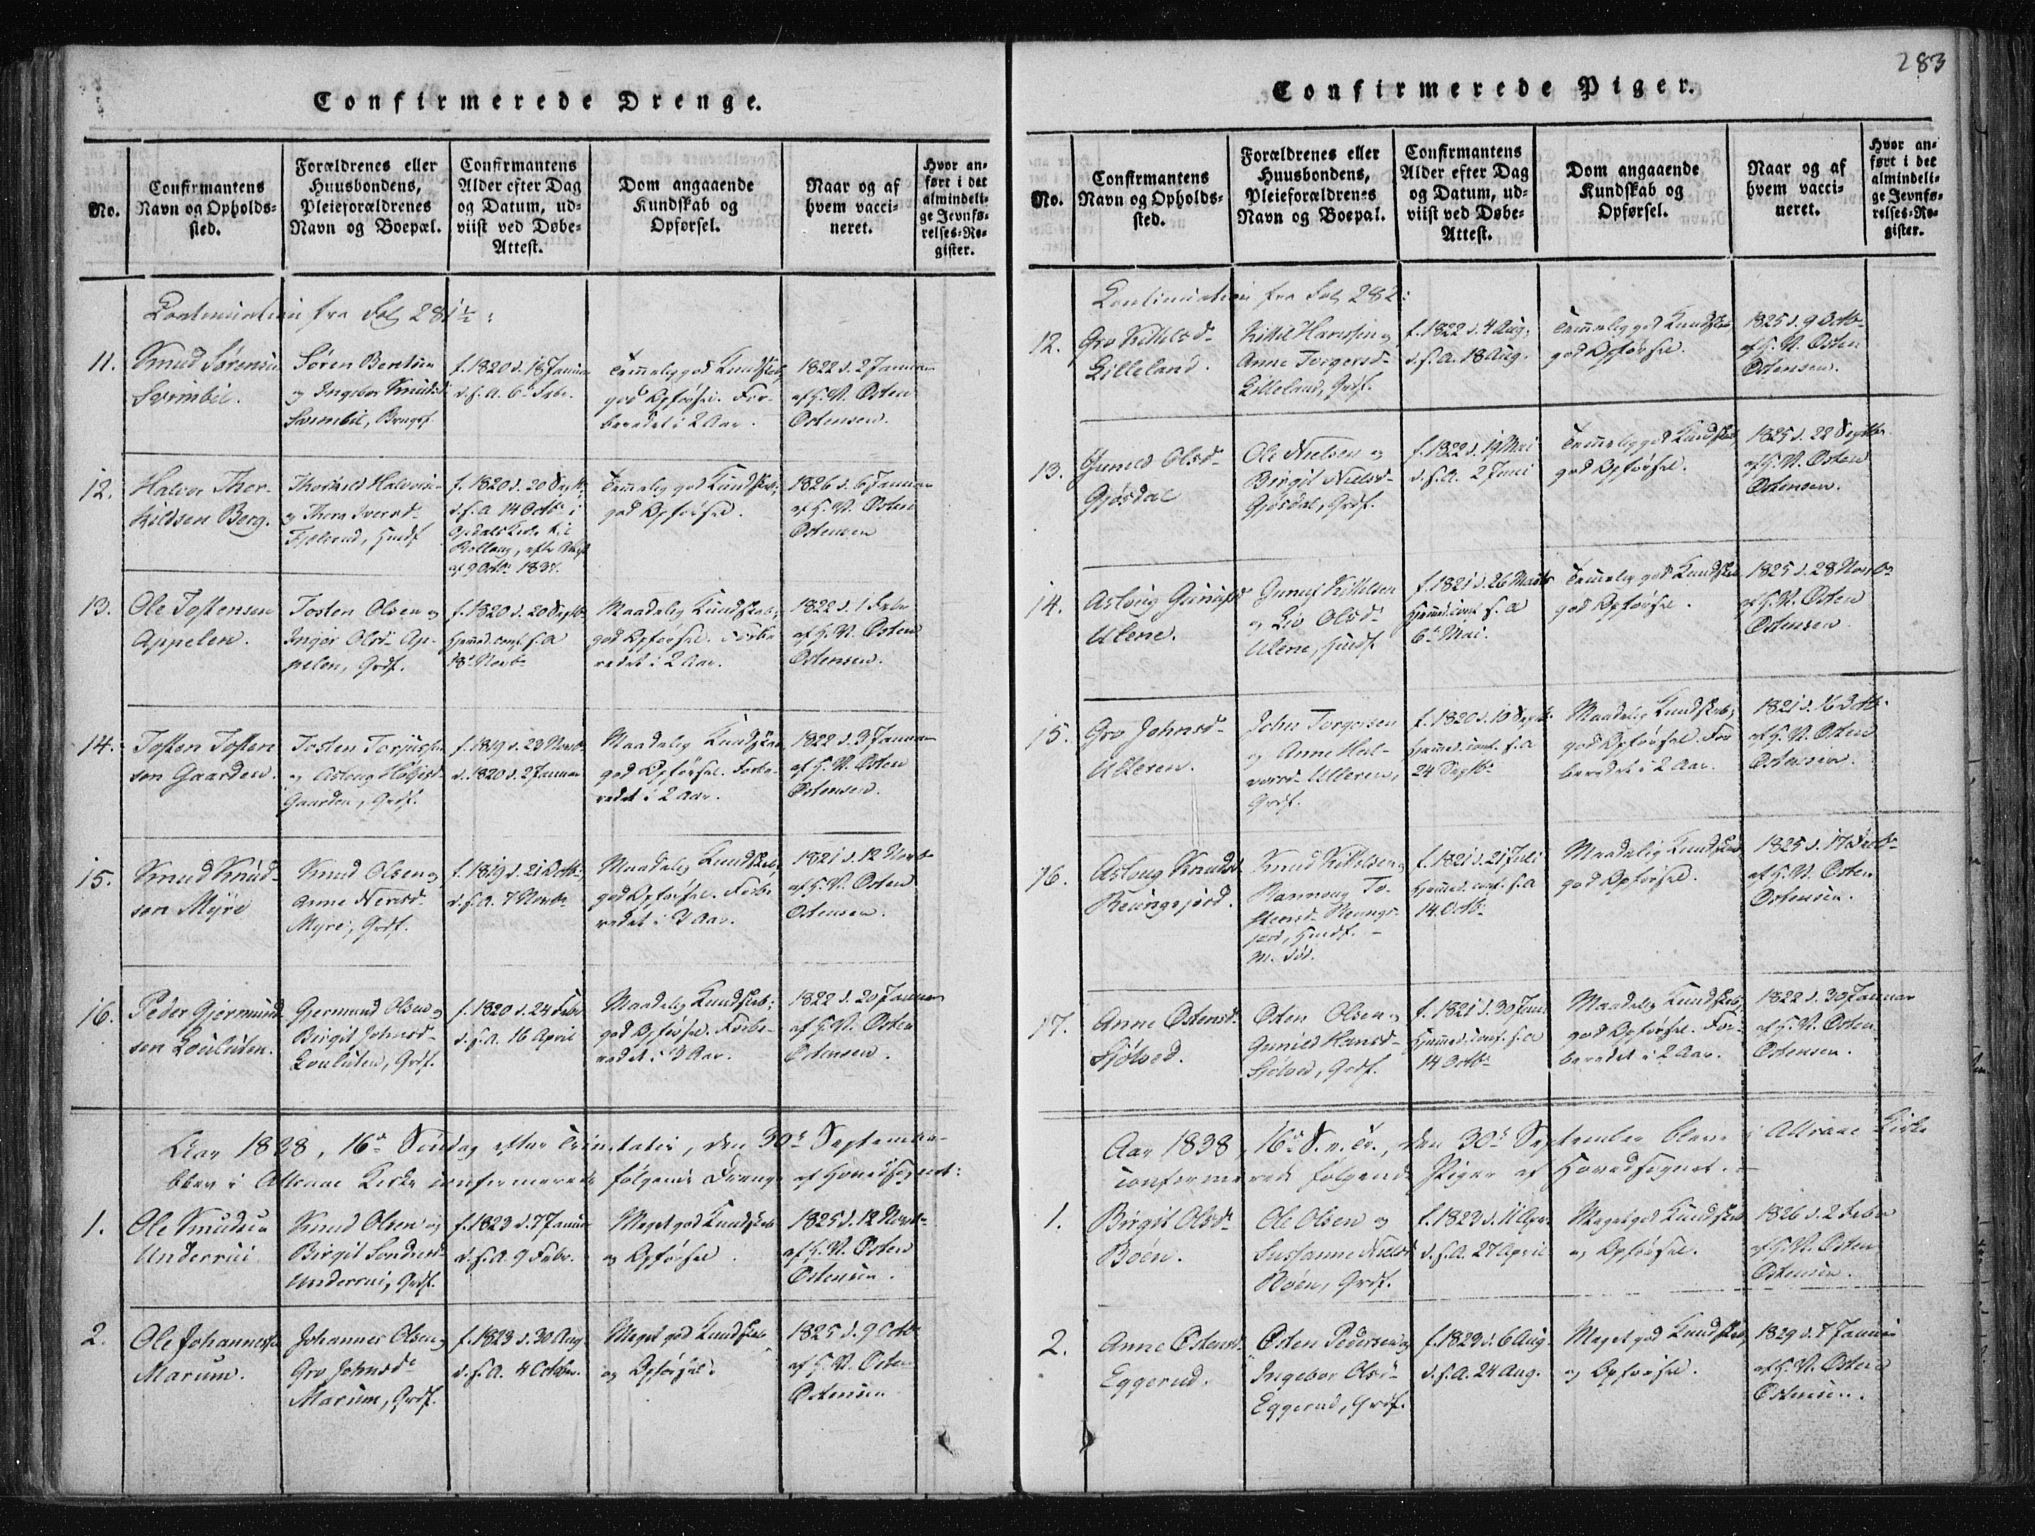 283
Confirmerede Drenge.
No.
Confirmantens
Navn og Opholds-
sted.
Forældrenes eller
Huusbondens,
Pleieforældrenes
Navn og Boepæl.
Confirmantens
Alder efter Dag
og Datum, ud-
viist ved Døbe-
Attest.
Dom angaaende
Kundskab og
Opførsel.
Naar og af
hvem vacci-
neret.
Hvor an-
ført i det
almindeli-
ge Jevnfø-
relses-Re-
gister.
Continuation fra Fol 281½:
11.
Knud Sørensen
Svimbil.
Søren Bentsen
og Ingebor Knudsd
Svimbil, Brugsf.
f. 1820 d. 18 Januar
d. s. A. 6 Febr.
Temmelig god Kundskab,
god Opførsel. For-
beredet i 2 Aar.
1822 d. 2 Januar
af H. N. Østen
Østensen.
12.
Halvor Thor-
kildsen Berg.
Thorkild Halvorsen
og Thora Iversd
Fjøsrud, Huusf.
f. 1820 d. 20 Septb
d. s. A. 14 Octbr i
Opdals Kirke til
Rollag, efter Attest
af 9 Octbr 1837.
Temmelig god Kundskab,
god Opførsel.
1826 d. 6 Januar
af H. N. Østen
Østensen
13.
Ole Tostensen
Appelen.
Tosten Olsen og
Ingør Olsd Ap-
pelen, Grdf.
f. 1820 d. 20 Septb
hjemmed. conf. s. A
18 Novbr
Maadelig Kundskab,
god Opførsel. Forbe-
redet i 2 Aar.
1822 d. 1 Febr
af H. N. Østen
Østensen.
14.
Tosten Tosten
sen Gaarden.
Tosten Torjusen
og Aslaug Holjesd
Gaarden, Grdf.
f. 1819 d. 23 Novbr
d. 1820 d. 2 Januar
Maadelig Kundskab
god Opførsel. Forbe-
redet i 2 Aar.
1822 d. 3 Januar
af H. N. Østen
Østensen.
15.
Knud Knud-
sen Myre
Knud Olsen og
Anne Nersd
Myre, Grdf.
f. 1819 d. 21 Octb
d. s. A. 7 Novbr
Maadelig Kundskab,
god Opførsel. Forbe-
redet i 3 Aar.
1821 d. 12 Novbr
af H. N. Østen
Østensen.
16.
Peder Gjermund
sen Louluten.
Gjermund Olsen og
Birgit Johnsd
Louluten, Grdf.
f. 1820 d. 24 Febr
d. s. A. 16 April
Maadelig Kundskab;
god Opførsel. Forbe-
redet i 3 Aar.
1822 d. 20 Januar
af H. N. Østen
Østensen.
Aar 1838, 16de Søndag efter Trinitatis, den 30te September
blev i Alraae Kirke confirmerede følgende Drenge af Hovedsognet:
1.
Ole Knudsen
Underrui
Knud Olsen og
Birgit Sondresd
Underrui, Grdf.
f. 1823 d. 7 Januar
d. s. A. 9 Febr.
Meget god Kundskab
og Opførsel.
1825 d. 12 Novbr
af H. N. Østen
Østensen.
2.
Ole Johannesen
Marum.
Johannes Olsen og
Gro Johnsd
Marum, Grdf.
f. 1823 d. 30 Aug
d. s. A. 4 October.
Meget god Kundskab
og Opførsel.
1825 d. 9 Octb
af H. N. Østen
Østensen
Confirmerede Piger.
No.
Confirmantens
Navn og Opholds-
sted.
Forældrenes eller
Huusbondens,
Pleieforældrenes
Navn og Boepal.
Confirmantens
Alder efter Dag
og Datum, ud-
viist ved Døbe-
Attest.
Dom angaaende
Kundskab og
Opførsel.
Naar og af
hvem vacci-
neret.
Hvor an-
ført i det
almindeli-
ge Jevnfø-
relses-Re-
gister.
Continuation fra Fol 282:
12.
Gro Kittilsd
Lilleland.
Kittil Hansen og
Anne Torgersd
Lilleland, Grdf.
f. 1822 d. 4 Aug.
d. s. A. 18 Aug.
Temmelig god Kundskab
god Opførsel.
1825 d. 9 Octb
af H. N. Østen
Østensen.
13.
Gunild Olsd
Gjøsdal
Ole Nielsen og
Birgit Nielsd
Gjøsdal, Grdf.
f. 1822 d. 19 Mai
d. s. A. 2 Juni
Temmelig god Kundskab,
god Opførsel.
1825 d. 22 Septbr
af H. N. Østen
Østensen.
14.
Aslaug Gunufsd
Ulene.
Gunuf Kittilsen
og Liv Olsd
Ulene, Huusf.
f. 1821 d. 26 Marts
hjemmed. conf. s. A
6 Mai.
Temmelig god Kundskab
god Opførsel.
1825 d. 28 Novbr
af H. N. Østen
Østensen
15.
Gro Johnsd
Ulleren.
John Torgersen
og Anne Hal-
vorsd Ulleren,
Grdf.
f. 1820 d. 10 Septb
hjemmed. conf. s. A
24 Septbr
Maadelig Kundskab,
god Opførsel. For
beredet i 2 Aar.
1821 d. 16 Octb.
af H. N. Østen
Østensen.
16.
Aslaug Knudsd
Reungsjord.
Knud Kittilsen og
Rannoug To-
stensd Reungs-
jord, Huusf.
M. død.
f. 1821 d. 21 Juli
hjemmed. conf. s. A
14 Octb
Maadelig Kundskab
god Opførsel.
1825 d. 17 Febr
af H. N. Østen
Østensen.
17.
Anne Østensd
Sjølved.
Østen Olsen og
Gunild Hansd
Sjølved, Grdf.
f. 1821 d. 30 Juni
hjemmed. conf. s. A
14 Octb
Maadelig Kundskab,
god Opførsel. For-
beredet i 2 Aar.
1822 d. 30 Januar
af H. N. Østen
Østensen.
Aar 1838, 16de S. e. Tr., den 30te September bleve i Alraae Kirke
confirmerede følgende Piger af Hovedsognet.
1.
Birgit Olsdr
Boën.
Ole Olsen og
Susanne Nielsd
Boën, Grdf.
f. 1823 d. 11 Apr.
d. s. A. 27 April
Meget god Kundskab
og Opførsel.
1826 d. 2 Febr
af H. N. Østen
Østensen.
2.
Anne Østensd
Eggerud.
Østen Pedersen og
Ingebor Olsd
Eggerud, Grdf.
f. 1823 d. 6 Aug
d. s. A. 24 Aug.
Meget god Kundskab,
og Opførsel.
1829 d. 7 Januar
af H. N. Østen
Østensen.